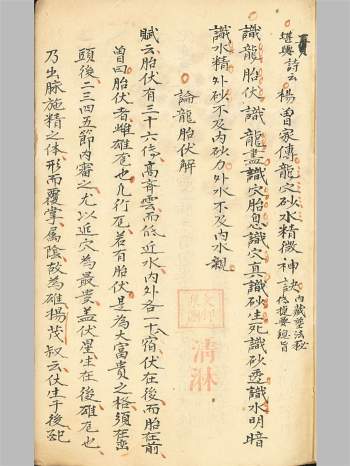 堪輿詩云
楊曾家傳龍穴砂水精微神訣
識龍胎伏識龍盡識穴胎息識穴真識砂生死識砂透識水明暗
識水精外砂不及內砂力外水不及內水親
論龍胎伏解
賦云胎伏有三十六條高齊雲而低近水內外各一十八箇伏在後而胎在前
曾曰胎伏者雌雄
也凡行
若有胎伏是為大富貴之格須在巒
頭後二三四五節內審之尤以近穴為最貴蓋伏星生在後雄
也
乃出脉施精之体形而覆掌屬陰故為雄楊茂叔云伏生于後
清淋